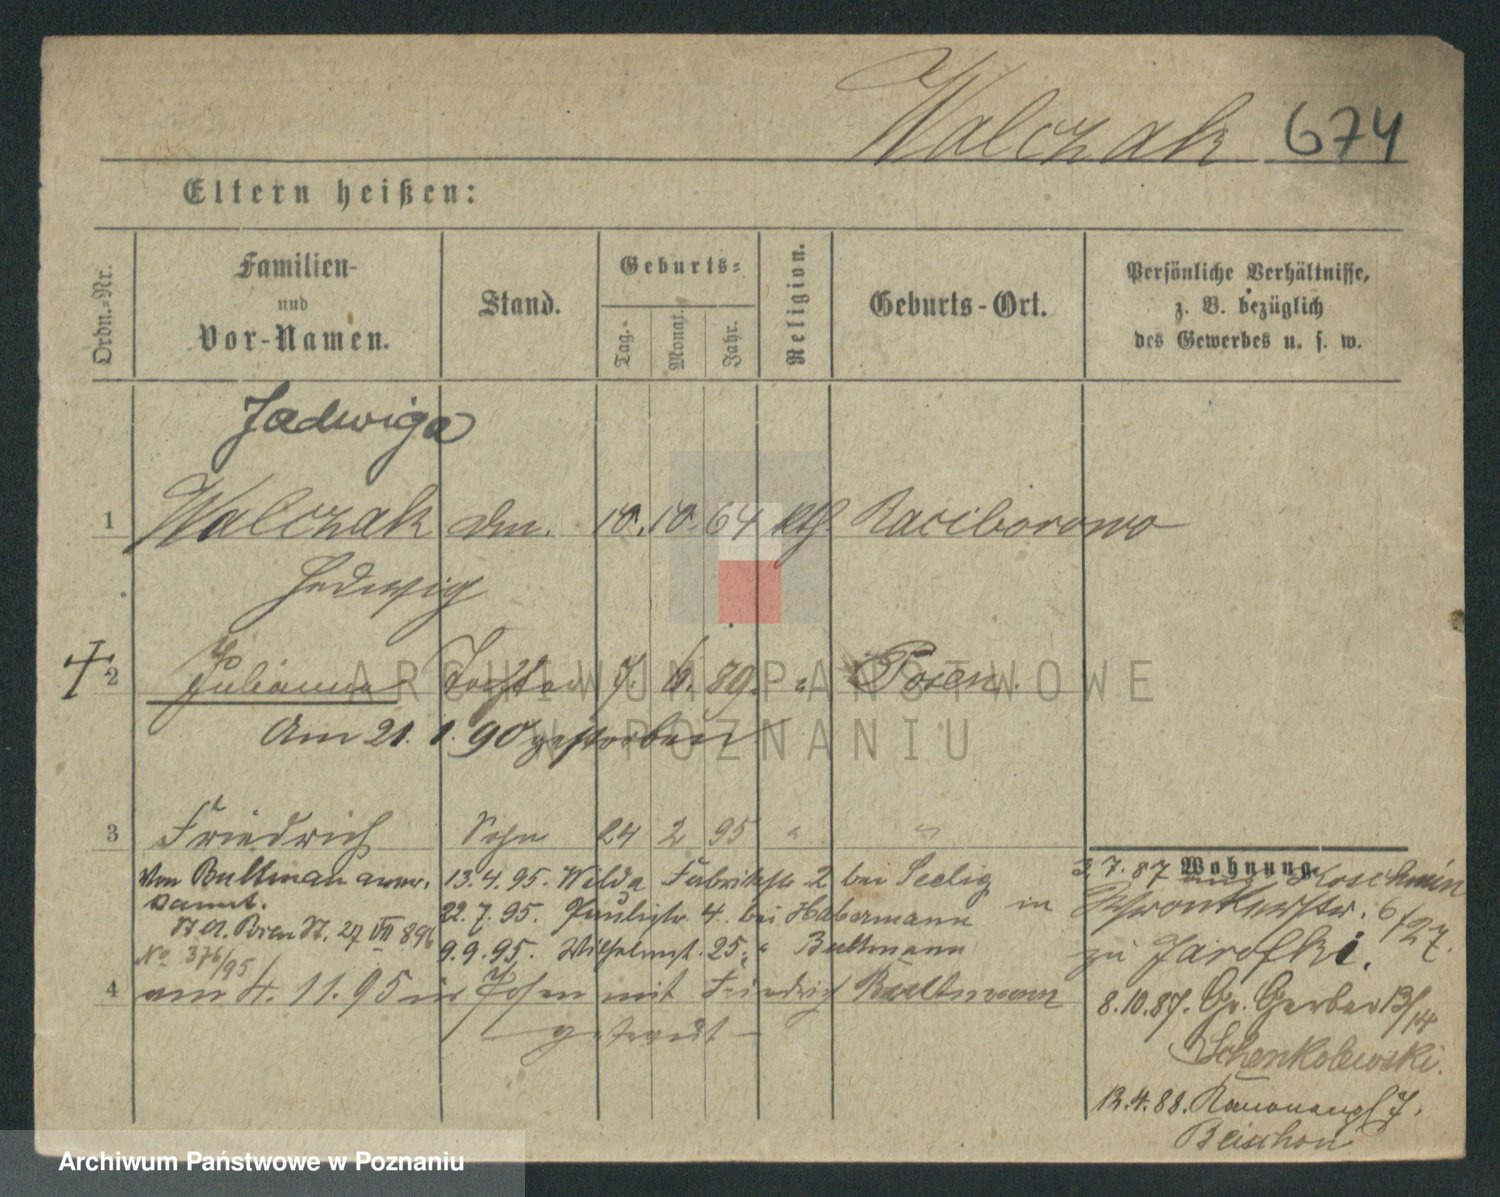 Walczak 674
Eltern heißen:
Ordn.-Nr.
Familien-
und
Vor-Namen.
Stand.
Geburts-
Tag.
Monat.
Jahr.
Religion.
Geburts-Ort.
Persönliche Verhältnisse,
z. B. bezüglich
des Gewerbes u. s. w.
Jadwiga
1 Walczak 10. 10. 64 kth Raciborowo
Hedwig
2 Julianna Tochter 7. 6. 89. " Posen.
Am 21. 1. 90 gestorben
3 Friedrich Sohn 24 2 95 " "
Von Bultman aner-
kannt.
St. A. Posen St. 27 VII 896
No 376/95
13.4.95. Wilda Fabrikstr 2 bei Seelig
22.7.95. Paulistr. 4. bei Habermann
9.9.95. Wilhelmst. 25. " Bultmann
4 am 4. 11. 95 in Posen mit Friedrich Bultmann
getraut
Wohnung.
3.7.87 aus Koschmin
in Wronkerstr. 6/27.
zu Jarofki.
8.10.87. Gr. Gerber 13/14
Schenkolewski.
12.4.88. 7.
ARCHIWUM PAŃSTWOWE
W POZNANIU
Archiwum Państwowe w Poznaniu